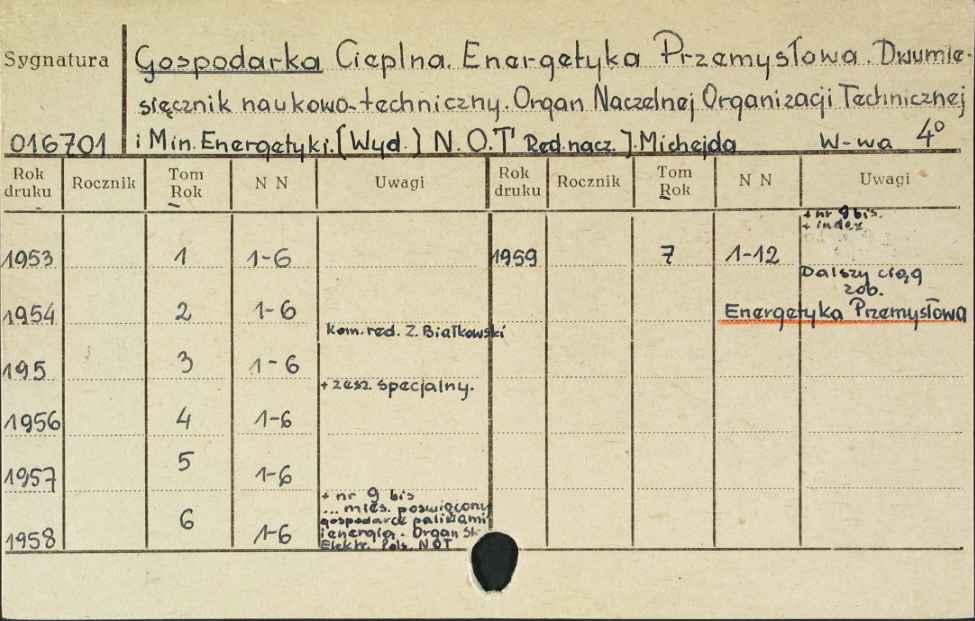 Sygnatura
Gospodarka Cieplna. Energetyka Przemysłowa. Dwumie-
sięcznik naukowo-techniczny. Organ Naczelnej Organizacji Technicznej
016701
i Min. Energetyki. [Wyd.] N.O.T Red. nacz. J. Michejda W-wa 4°
Rok druku Rocznik Tom Rok N N Uwagi Rok druku Rocznik Tom Rok N N Uwagi
+ nr 9 bis.
+ index
1953 1 1-6 1959 7 1-12
Dalszy ciąg
zob.
1954 2 1-6 Energetyka Przemysłowa
kom. red. Z. Białkowski
195 3 1-6
+ zesz. specjalny.
1956 4 1-6
1957 5 1-6
+ nr 9 bis
... mies. poswięcony
gospodarce paliwami
i energią. Organ St.
1958 6 1-6
Elektr. Pols. NOT